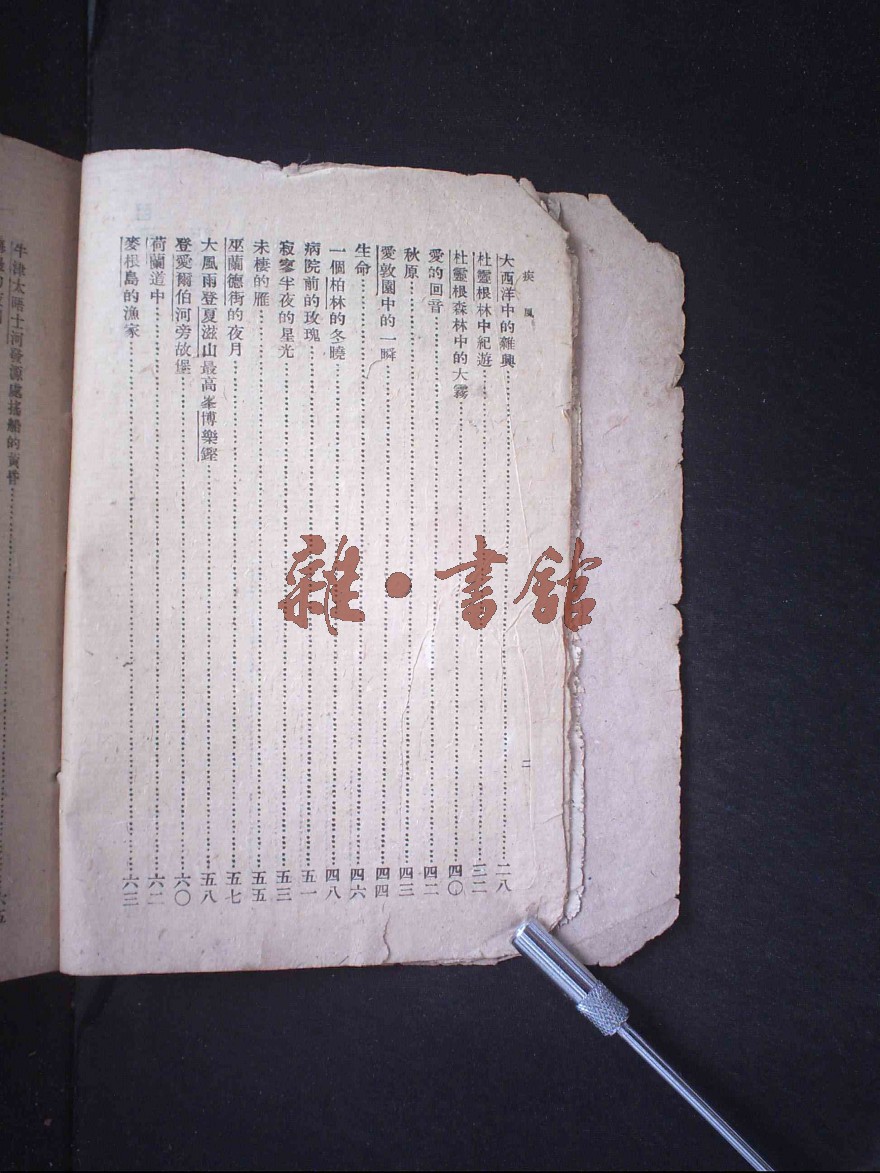 疾風
二
大西洋中的雜興 二八
杜靈根林中紀遊 三二
杜靈根森林中的大霧 四〇
愛的回音 四二
秋原 四三
愛敦園中的一瞬 四四
生命 四六
一個柏林的冬曉 四八
病院前的玫瑰 五一
寂寥半夜的星光 五三
未棲的雁 五五
巫蘭德街的夜月 五七
大風雨登夏滋山最高峯博樂鏗 五八
登愛爾伯河旁故堡 六〇
荷蘭道中 六二
麥根島的漁家 六三
牛津太晤士河發源處搖船的黃昏
雜·書館